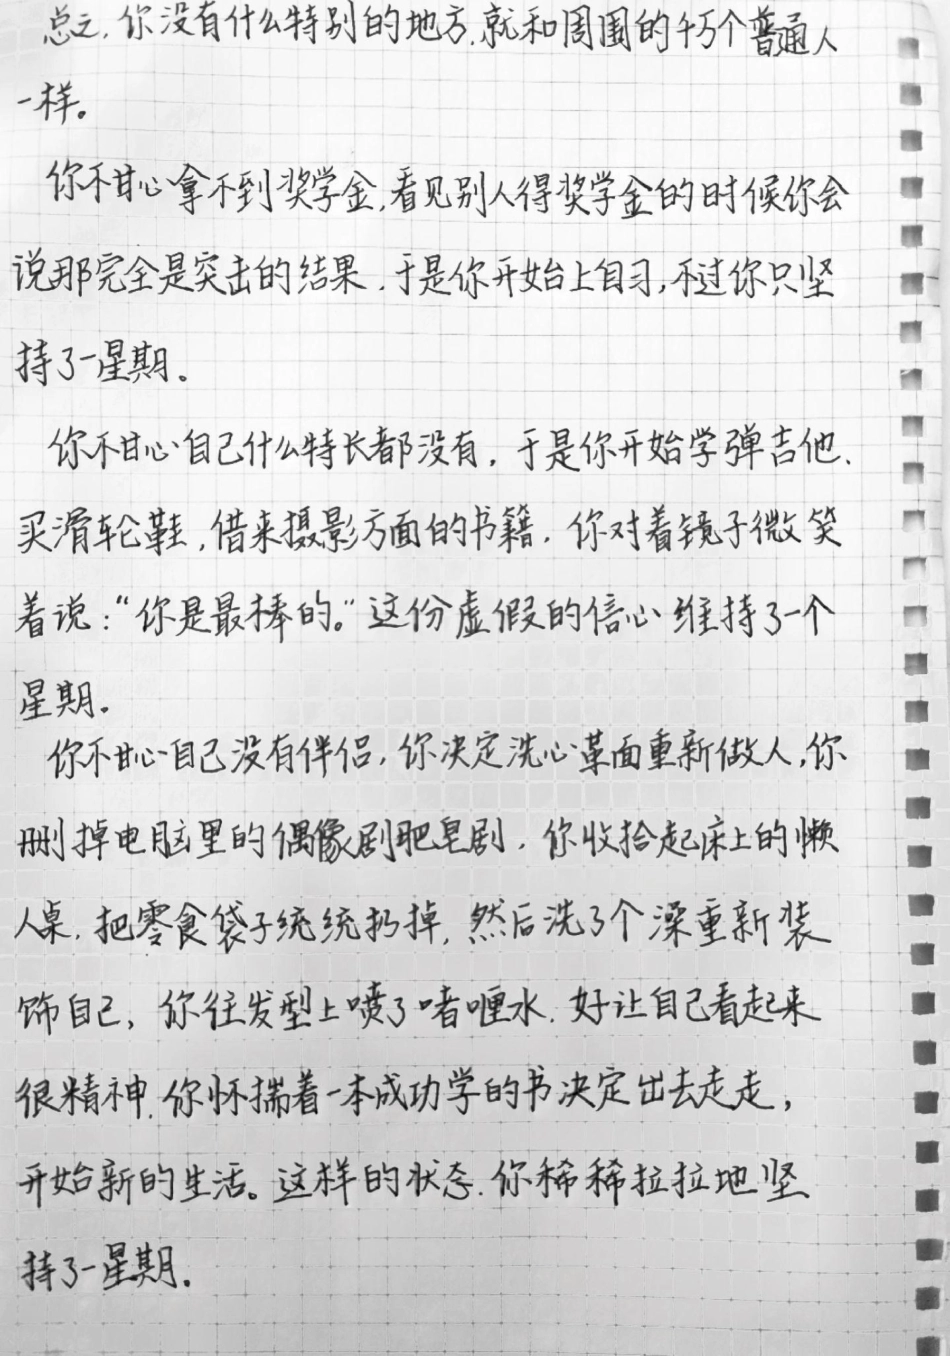 总之,你没有什么特别的地方,就和周围的千万个普通人
一样。
你不甘心拿不到奖学金,看见别人得奖学金的时候你会
说那完全是突击的结果,于是你开始上自习,不过你只坚
持了一星期。
你不甘心自己什么特长都没有,于是你开始学弹吉他、
买滑轮鞋,借来摄影方面的书籍,你对着镜子微笑
着说:“你是最棒的。”这份虚假的信心维持了一个
星期。
你不甘心自己没有伴侣,你决定洗心革面重新做人,你
删掉电脑里的偶像剧肥皂剧,你收拾起床上的懒
人桌,把零食袋子统统扔掉,然后洗了个澡重新装
饰自己,你往发型上喷了啫喱水,好让自己看起来
很精神,你怀揣着一本成功学的书决定出去走走,
开始新的生活。这样的状态,你稀稀拉拉地坚
持了一星期。